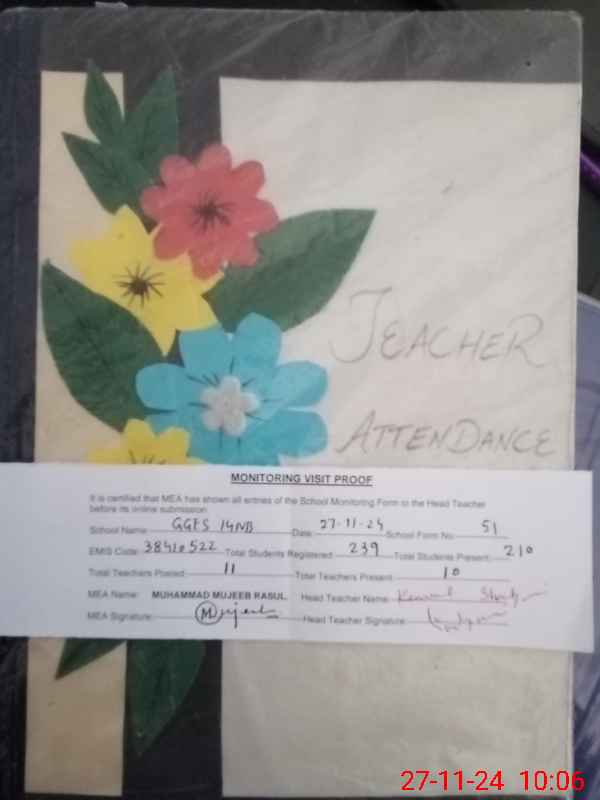 TEACHER
ATTENDANCE
MONITORING VISIT PROOF
It is certified that MEA has shown all entries of the School Monitoring Form to the Head Teacher
before its online submission
School Name: GGES 14NB Date: 27-11-24 School Form No: 51
EMIS Code: 38410522 Total Students Registered: 239 Total Students Present: 210
Total Teachers Posted: 11 Total Teachers Present: 10
MEA Name: MUHAMMAD MUJEEB RASUL Head Teacher Name:
MEA Signature: Mujeeb Head Teacher Signature:
27-11-24 10:06